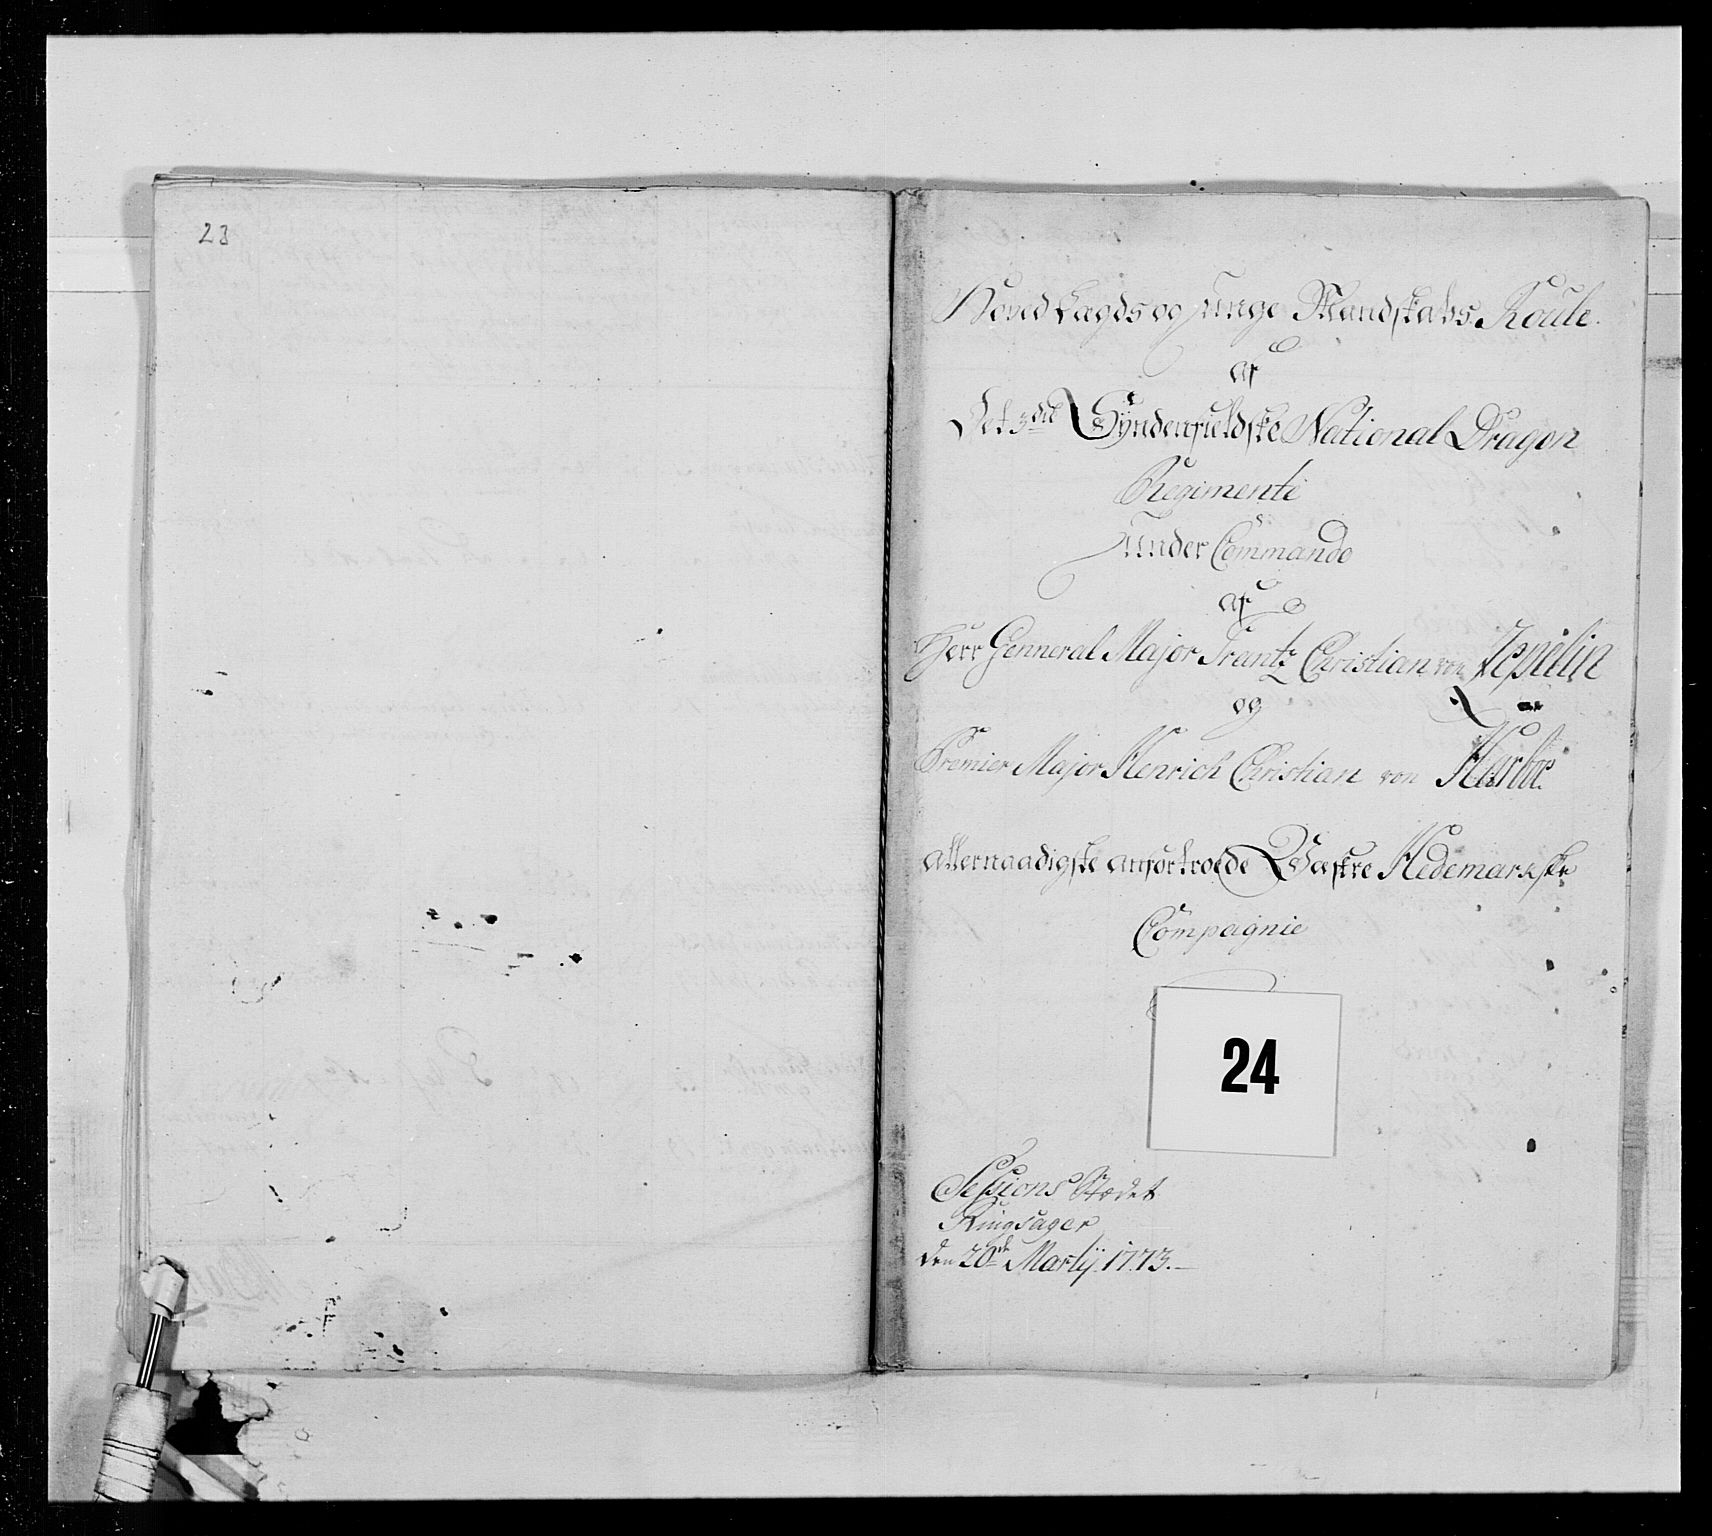 23
Hoved Lægds og unge Mandskabs Roule.
af
Det 3die Syndenfieldske National Dragon
Regimente
under Commando
af
Herr Genneral Major Frantz Christian von Zepelin
og
Premier Major Henrich Christian von Harboe
allernaadigste anfortroede Westre Hedemarkske
Compagnie
24
Sessions Stædet
Ringsager
den 20de Martij 1773.